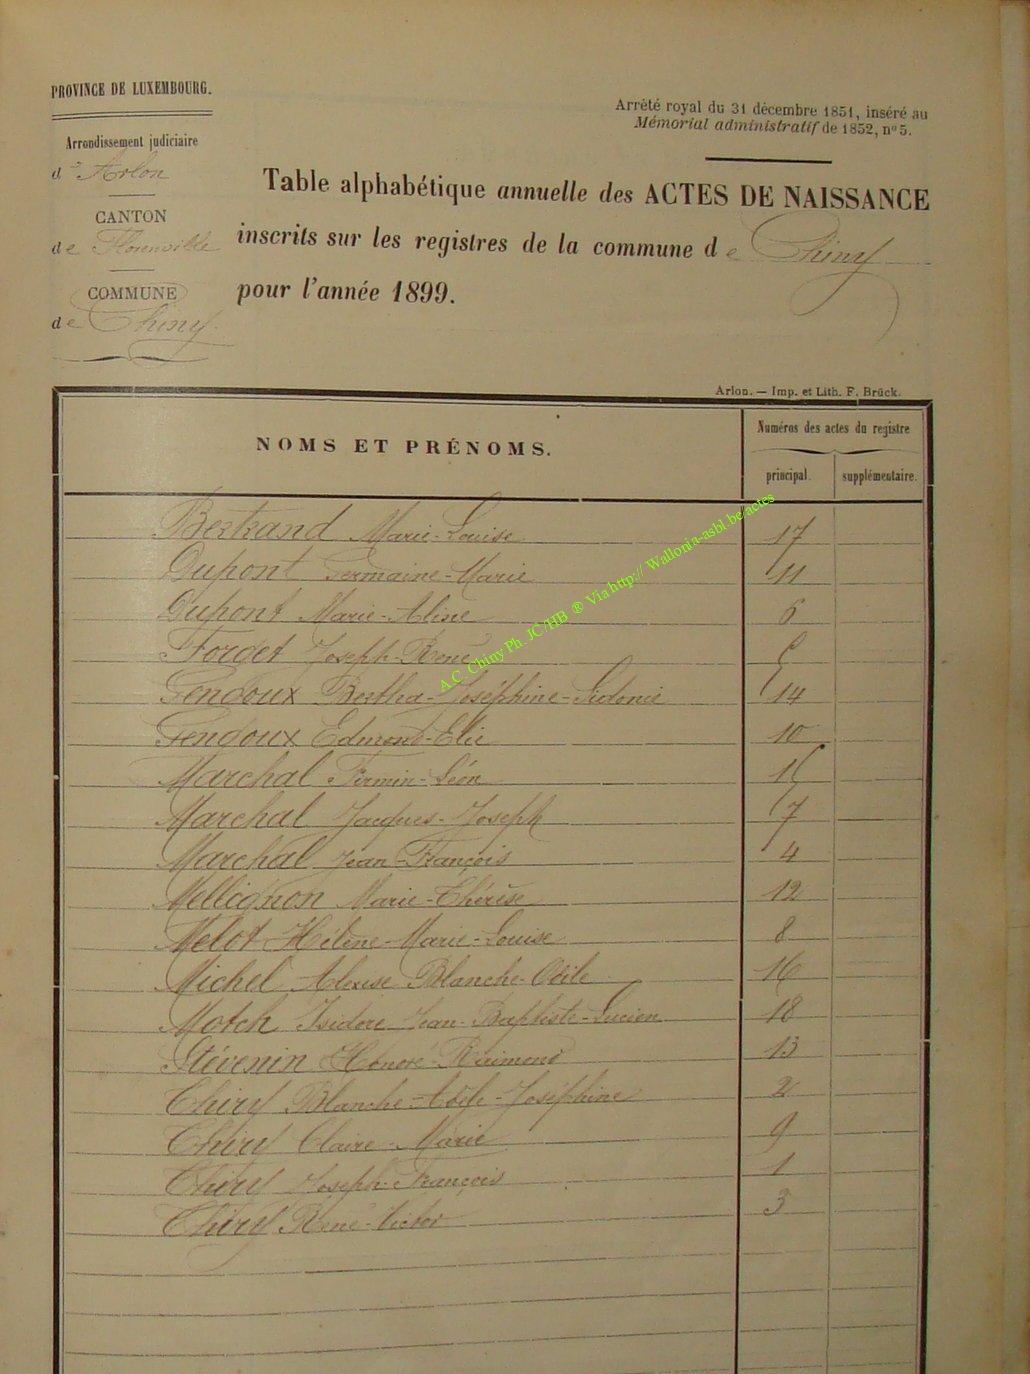 PROVINCE DE LUXEMBOURG.
Arrondissement judiciaire
d'Arlon
CANTON
de Florenville
COMMUNE
de Chiny
Arrêté royal du 31 décembre 1851, inséré au
Mémorial administratif de 1852, n° 5.
Table alphabétique annuelle des ACTES DE NAISSANCE
inscrits sur les registres de la commune de Chiny
pour l'année 1899.
Arlon. — Imp. et Lith. F. Brück.
NOMS ET PRÉNOMS.
Numéros des actes du registre
principal. supplémentaire.
Bertrand Marie-Louise 17
Dupont Germaine-Marie 11
Dupont Marie-Aline 6
Forget Joseph-René
Gendoux Bertha-Joséphine-Sidonie 14
Gendoux Edmond-Elie 10
Marchal Firmin-Léon
Marchal Jacques-Joseph 7
Marchal Jean-François 4
Mellignon Marie-Thérèse 12
Melot Hélène-Marie-Louise 8
Michel Blanche-Odile 16
Motch Isidore Jean-Baptiste-Lucien 18
Stévenin Honoré-Raimond 13
Thiry Blanche-Adèle-Joséphine 2
Thiry Claire-Marie 9
Thiry Joseph-François 1
Thiry René-Victor 3
A.C. Chiny Ph. JC/HB ® Via http:// Wallonia-asbl.be/actes